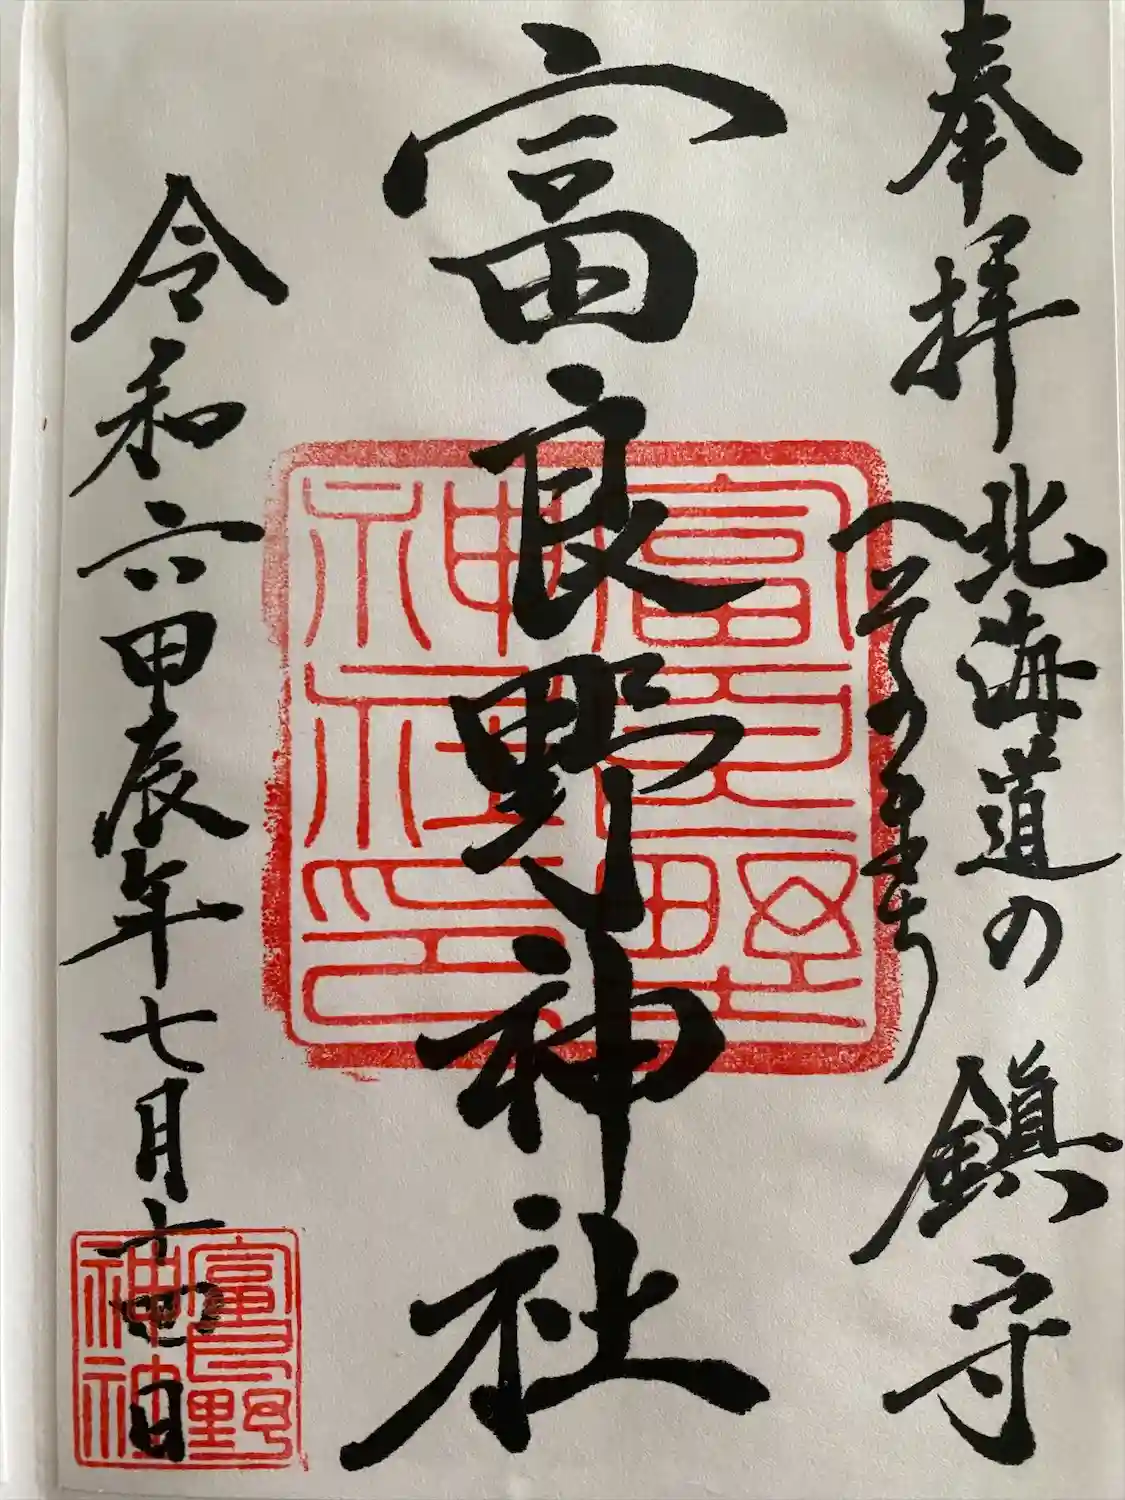 奉拝
北海道の
へそのまち
鎮守
富良野神社
富良野神社印
令和六甲辰年七月十四日
富良野神社